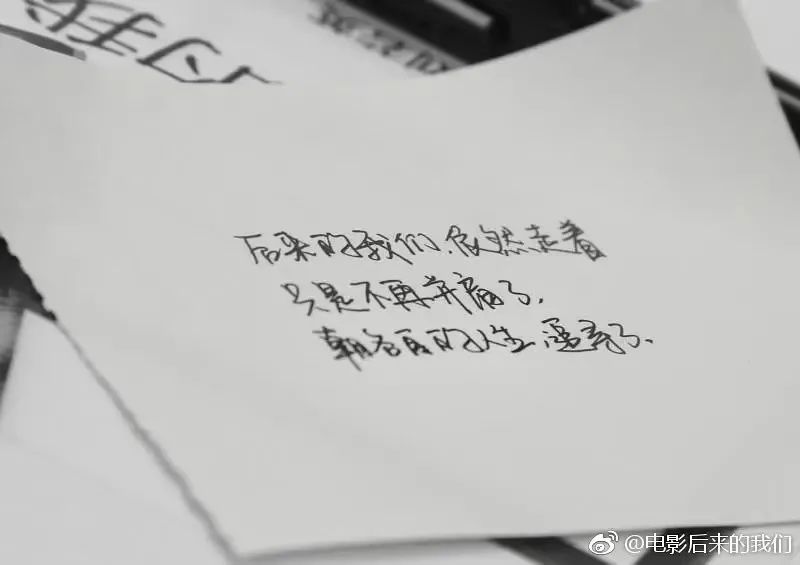 的我
后来的我们,依然走着
只是不再并肩了,
朝各自的人生,追寻了、
@电影后来的我们